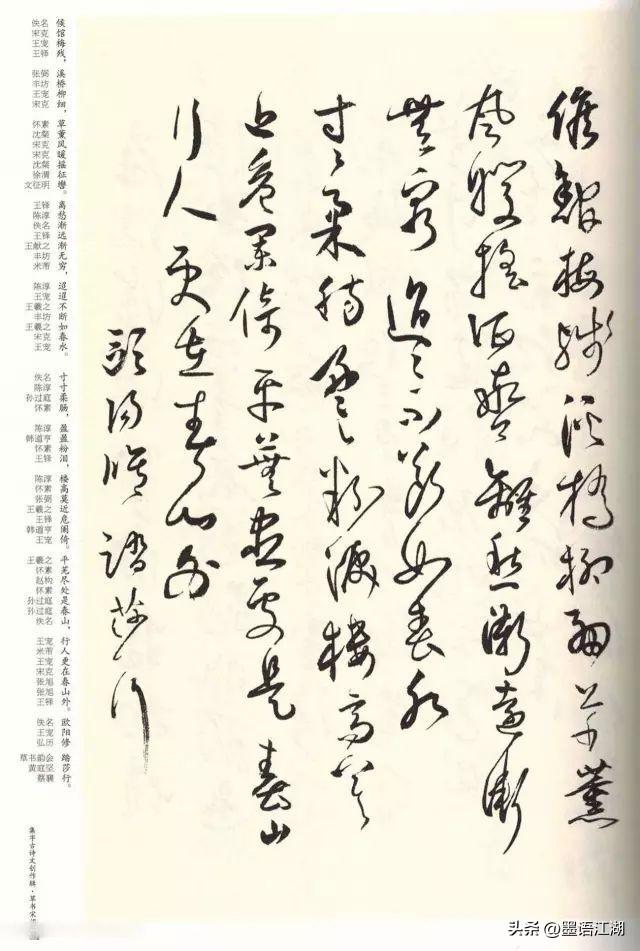 候館梅殘溪橋柳細草薰
風暖搖征轡離愁漸遠漸
無窮迢々不斷如春水
寸々柔腸盈々粉淚樓高莫
近危闌倚平蕪盡處是春山
行人更在春山外
歐陽修踏莎行
候馆梅残，溪桥柳细，草薰风暖摇征辔。离愁渐远渐无穷，迢迢不断如春水。寸寸柔肠，盈盈粉泪，楼高莫近危阑倚。平芜尽处是春山，行人更在春山外。欧阳修 踏莎行。
佚名 宋克 王宠 王铎 张弼 丰坊 王宠 宋克 怀素 沈粲 宋克 宋克 沈粲 徐渭 文征明 王铎 陈淳 佚名 王铎 王献之 丰坊 米芾 陈淳 王宠 王羲之 丰坊 王羲之 宋克 王宠 佚名 陈淳 孙过庭 怀素 陈淳 韩道亨 怀素 王铎 陈淳 怀素 张弼 王羲之 王铎 韩道亨 王宠 王羲之 怀素 赵构 怀素 孙过庭 孙过庭 佚名 王宠 米芾 王宠 宋克 张旭 张旭 王铎 佚名 王宠 弘历 草书韵会 黄庭坚 蔡襄
集字古诗文创作辑·草书宋词
头条 @墨语江湖